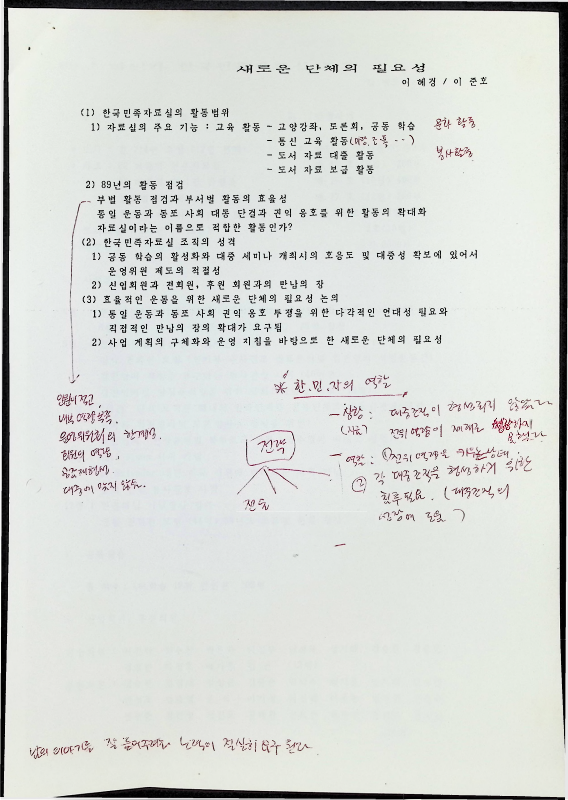 새로운 단체의 필요성
이 혜경 / 이 준호
(1) 한국민족자료실의 활동범위
1) 자료실의 주요 기능 : 교육 활동 - 교양강좌, 토론회, 공동 학습 문화 활동
- 통신 교육 활동
- 도서 자료 대출 활동 봉사활동
- 도서 자료 보급 활동
2) 89년의 활동 점검
부별 활동 점검과 부서별 활동의 효율성
통일 운동과 동포 사회 대동 단결과 권익 옹호를 위한 활동의 확대화
자료실이라는 이름으로 적합한 활동인가?
(2) 한국민족자료실 조직의 성격
1) 공동 학습의 활성화와 대중 세미나 개최시의 호응도 및 대중성 확보에 있어서
운영위원 제도의 적절성
2) 신입회원과 전회원, 후원 회원과의 만남의 장
(3) 효율적인 운동을 위한 새로운 단체의 필요성 논의
1) 통일 운동과 동포 사회 권익 옹호 투쟁을 위한 다각적인 연대성 필요와
직접적인 만남의 장의 확대가 요구됨
2) 사업 계획의 구체화와 운영 지침을 바탕으로 한 새로운 단체의 필요성
인원이 적고,
내부 역량 부족,
운영위원회의 한계성
회원의 역량,
대중에 맞지 않음.
전략
전술
※ 한.민.자의 역할
- 상황 : 대중조직이 형성되지 않았다
전위 역량이 제대로 형성하지 못했다
- 역할 : ① 전위 역량은
② 각 대중조직을 형성하기 위한
필요. (대중조직의
성장에 도움)
남의 이야기를 잘 들어주려는 노력이 절실히 요구 된다.